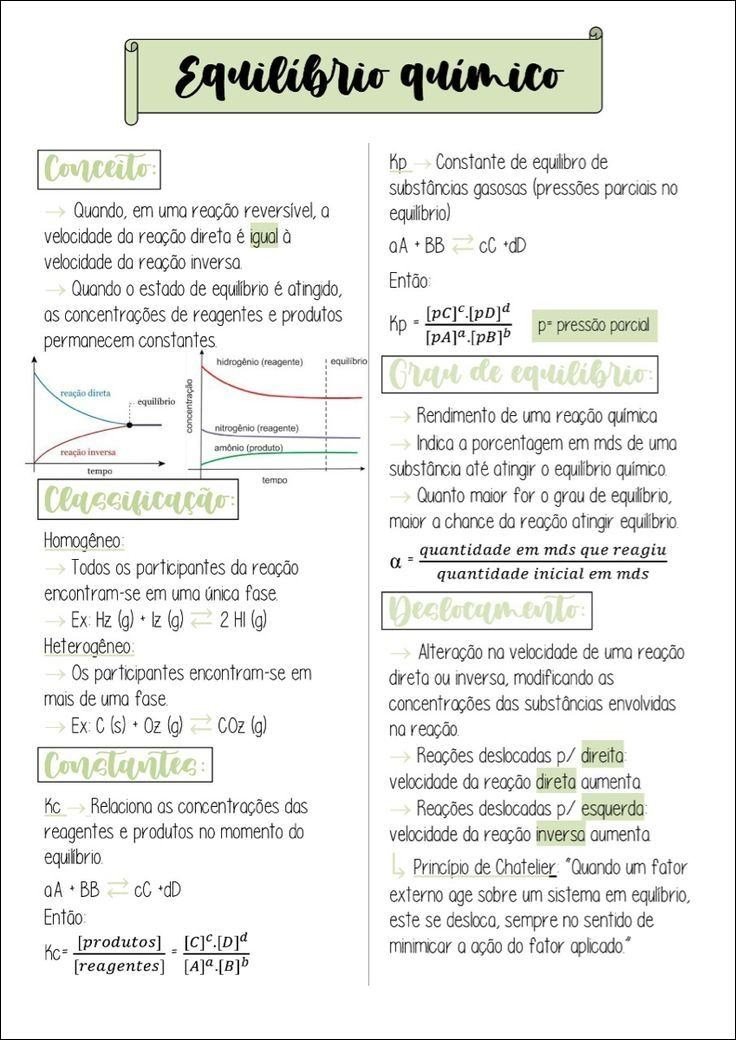 Equilíbrio químico
Conceito:
→ Quando, em uma reação reversível, a
velocidade da reação direta é igual à
velocidade da reação inversa.
→ Quando o estado de equilíbrio é atingido,
as concentrações de reagentes e produtos
permanecem constantes.
reação direta
equilíbrio
reação inversa
tempo
concentração
hidrogênio (reagente)
equilíbrio
nitrogênio (reagente)
amônio (produto)
tempo
Classificação:
Homogêneo:
→ Todos os participantes da reação
encontram-se em uma única fase.
→ Ex: Hz (g) + Iz (g) ⇄ 2 HI (g)
Heterogêneo:
→ Os participantes encontram-se em
mais de uma fase.
→ Ex: C (s) + Oz (g) ⇄ COz (g)
Constantes:
Kc → Relaciona as concentrações das
reagentes e produtos no momento do
equilíbrio.
aA + BB ⇄ cC +dD
Então:
Kc= [produtos]/[reagentes] = [C]^c.[D]^d/[A]^a.[B]^b
Kp → Constante de equilibro de
substâncias gasosas (pressões parciais no
equilíbrio)
aA + BB ⇄ cC +dD
Então:
Kp = [pC]^c.[pD]^d/[pA]^a.[pB]^b p= pressão parcial
Grau de equilíbrio:
→ Rendimento de uma reação química
→ Indica a porcentagem em mds de uma
substância até atingir o equilíbrio químico.
→ Quanto maior for o grau de equilíbrio,
maior a chance da reação atingir equilíbrio.
α = quantidade em mds que reagiu/quantidade inicial em mds
Deslocamento:
→ Alteração na velocidade de uma reação
direta ou inversa, modificando as
concentrações das substâncias envolvidas
na reação.
→ Reações deslocadas p/ direita:
velocidade da reação direta aumenta
→ Reações deslocadas p/ esquerda:
velocidade da reação inversa aumenta
↳ Princípio de Chatelier: "Quando um fator
externo age sobre um sistema em equlíbrio,
este se desloca, sempre no sentido de
minimicar a ação do fator aplicado."